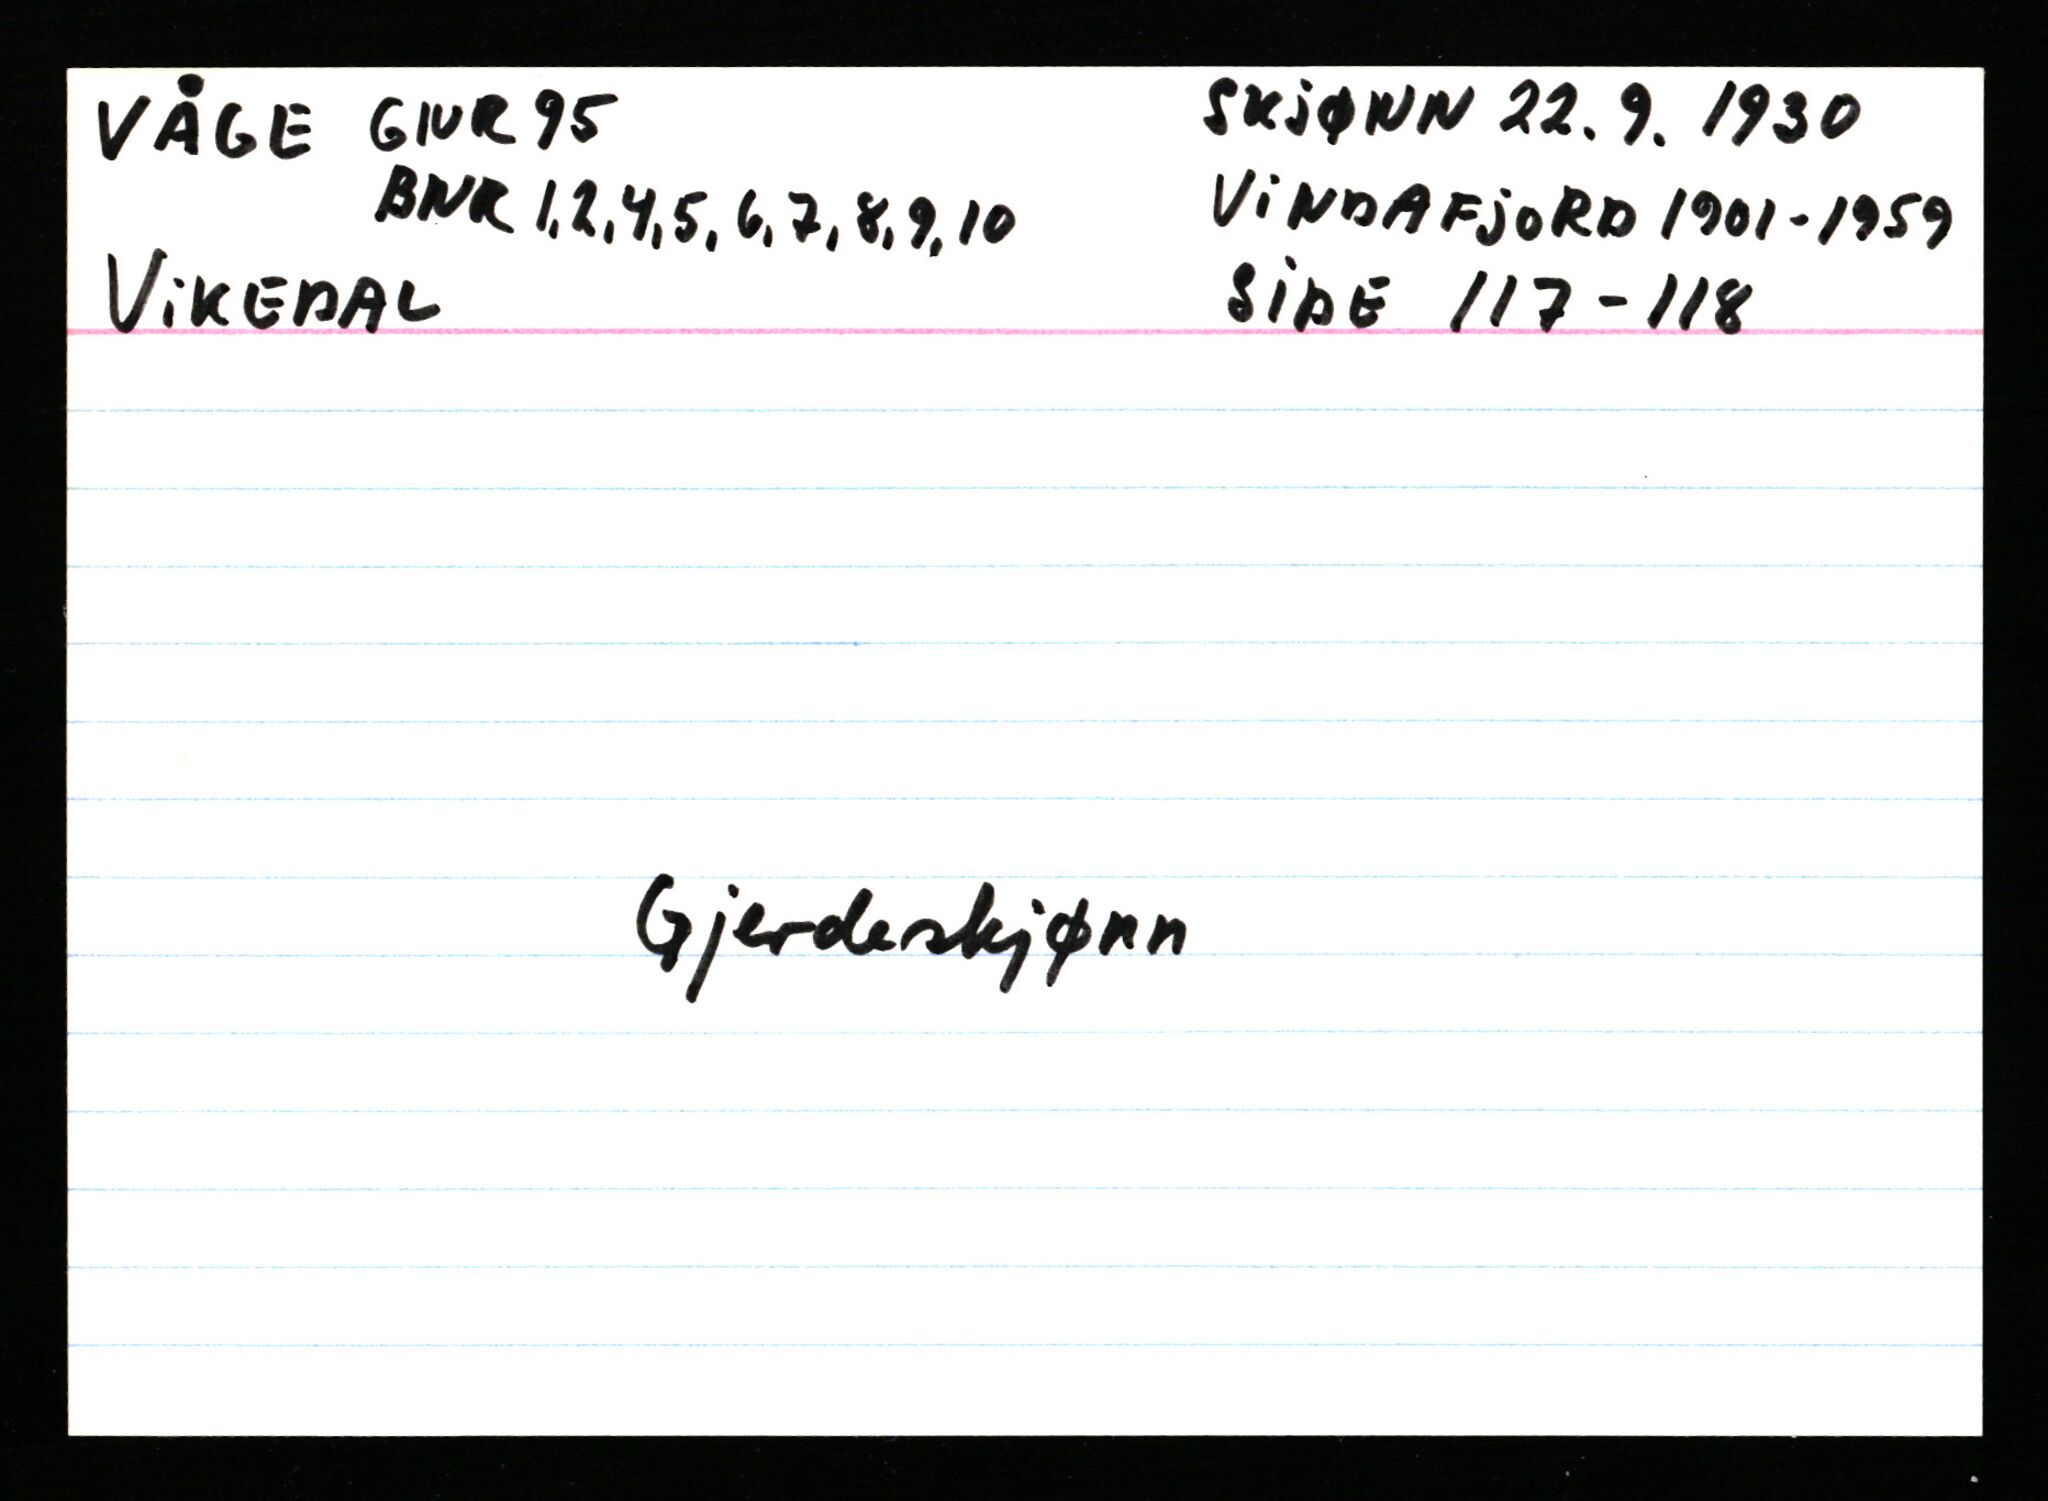 VÅGE GNR 95
BNR 1,2,4,5,6,7,8,9,10
VIKEDAL
SKJØNN 22.9.1930
VINDAFJORD 1901-1959
SIDE 117-118
Gjerdeskjønn